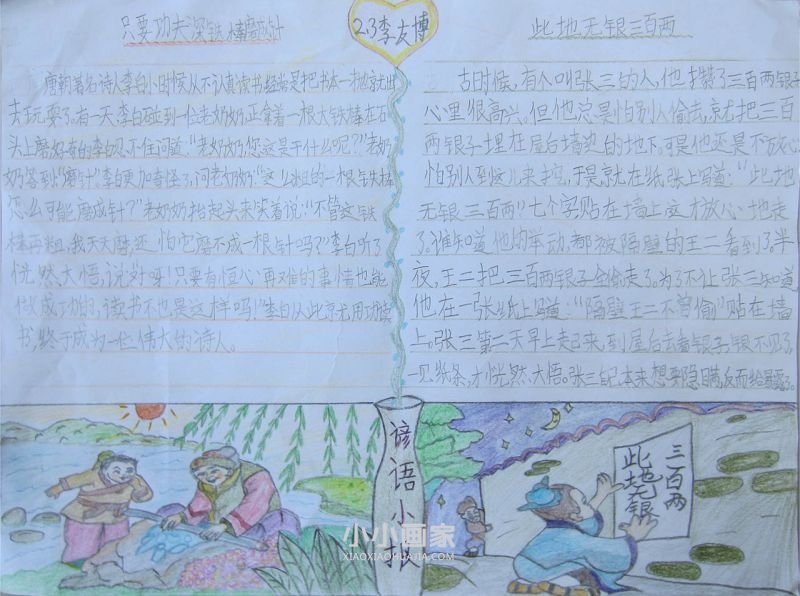 只要功夫深铁棒磨成针
2.3李友博
此地无银三百两
唐朝著名诗人李白小时候从不认真读书经常是把书本一抛就出
去玩耍了。有一天李白碰到一位老奶奶,正拿着一根大铁棒在石
头上磨好奇的李白忍不住问道:"老奶奶,您这是干什么呢?"老奶
奶答到:"磨针"李白更加奇怪了,问老奶奶:"这么粗的一根铁棒
怎么可能磨成针?"老奶奶抬起头来笑着说:"不管这铁
棒再粗,我天天磨,还怕它磨不成一根针吗?"李白听了
恍然大悟,说好呀!只要有恒心再难的事情也能
做成功的,读书不也是这样吗!"李白从此京尤用功读
书,终于成为一位伟大的诗人。
古时候,有个叫张三的人,他攒了三百两银子
心里很高兴。但他总是怕别人偷去,就把三百
两银子埋在屋后墙边的地下,可是他还是不放心
怕别人到这儿来挖,于是就在纸张上写道:"此地
无银三百两"七个字贴在墙上这才放心地走
了。谁知道他的举动,都被隔壁的王二看到了。半
夜,王二把三百两银子全偷走了。为了不让张三知道
他在一张纸上写道:"隔壁王二不曾偷"贴在墙
上。张三第二天早上走起来,到屋后去看银子,银不见了
一见纸条,才恍然大悟。张三本来想要隐瞒,反而给暴露了。
谚语小报
三百两
此地无银
小小画家
XIAOXIAOHUAJIA.COM